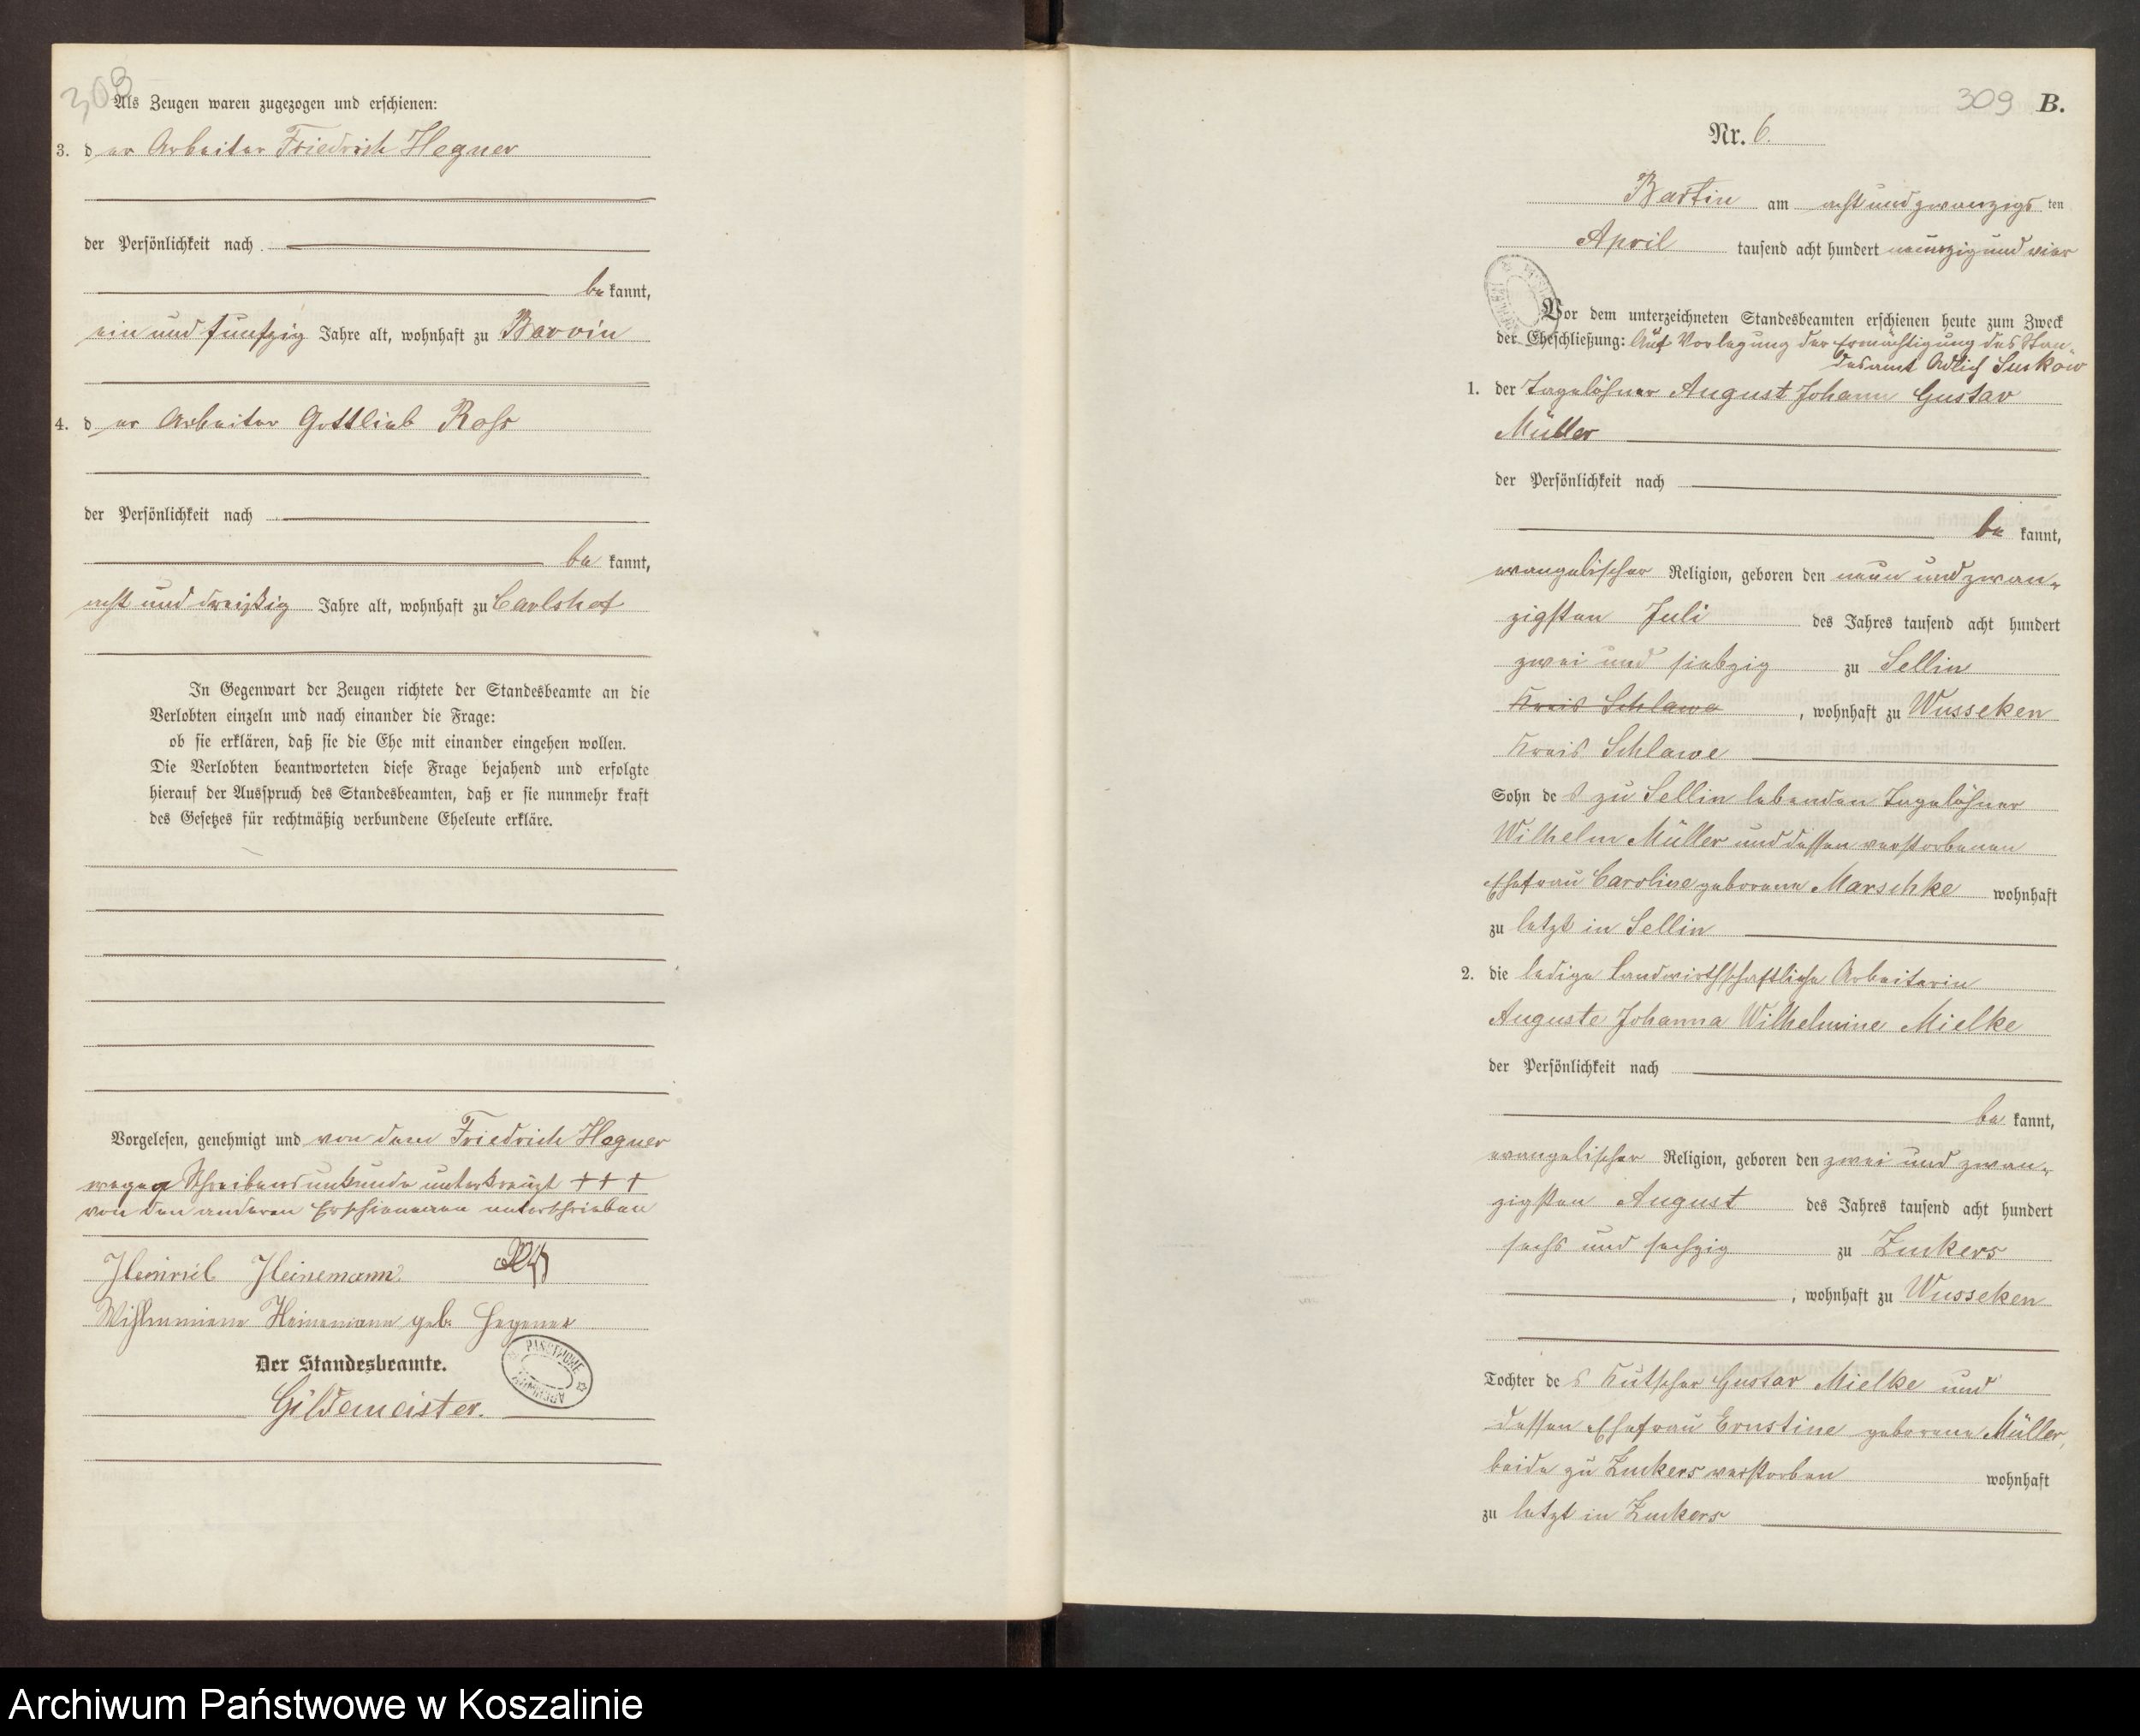 308
Als Zeugen waren zugezogen und erschienen:
3. der Arbeiter Friedrich Hegner
der Persönlichkeit nach
bekannt,
ein und fünfzig Jahre alt, wohnhaft zu Barvin
4. der Arbeiter Gottlieb Roß
der Persönlichkeit nach
bekannt,
acht und dreißig Jahre alt, wohnhaft zu Carlshof
In Gegenwart der Zeugen richtete der Standesbeamte an die
Verlobten einzeln und nach einander die Frage:
ob sie erklären, daß sie die Ehe mit einander eingehen wollen.
Die Verlobten beantworteten diese Frage bejahend und erfolgte
hierauf der Ausspruch des Standesbeamten, daß er sie nunmehr kraft
des Gesetzes für rechtmäßig verbundene Eheleute erkläre.
Vorgelesen, genehmigt und von dem Friedrich Hegner
wegen Schreibensunkunde unterkreuzt +++
von den anderen Erschienenen unterschrieben
Heinrich Heinemann
Wilhelmine Heinemann geb. Hegener
Der Standesbeamte.
PAŃSTWOWE ARCHIWUM
Gildemeister.
309 B.
Nr. 6.
Bartin am acht und zwanzigsten
April tausend acht hundert neunzig und vier
Vor dem unterzeichneten Standesbeamten erschienen heute zum Zweck
der Eheschließung: Auf Vorlegung der Ermächtigung des Stan-
desamt Adlich Suckow
1. der Tagelöhner August Johann Gustav
Müller
der Persönlichkeit nach
bekannt,
evangelischer Religion, geboren den neun und zwan-
zigsten Juli des Jahres tausend acht hundert
zwei und siebzig zu Sellin
Kreis Schlawe, wohnhaft zu Wusseken
Kreis Schlawe
Sohn des zu Sellin lebenden Tagelöhner
Wilhelm Müller und dessen verstorbenen
Ehefrau Caroline geborene Marschke wohnhaft
zu letzt in Sellin
2. die ledige landwirthschaftliche Arbeiterin
Auguste Johanna Wilhelmine Mielke
der Persönlichkeit nach
bekannt,
evangelischer Religion, geboren den zwei und zwan-
zigsten August des Jahres tausend acht hundert
sechs und sechzig zu Zuckers
, wohnhaft zu Wusseken
Tochter des Kutscher Gustav Mielke und
dessen Ehefrau Ernstine geborene Müller,
beide zu Zuckers verstorben wohnhaft
zu letzt in Zuckers
Archiwum Państwowe w Koszalinie